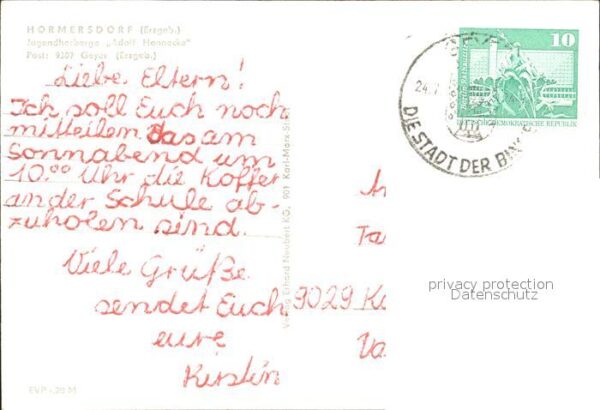 HORMERSDORF (Erzgeb.)
Jugendherberge „Adolf Hennecke"
Post: 9307 Geyer (Erzgeb.)
Liebe Eltern!
Ich soll Euch noch
mitteilen das am
Sonnabend um
10.00 Uhr die Koffer
an der Schule ab-
zuholen sind.
Viele Grüße
sendet Euch
eure
Kerstin
EVP -,20 M
Verlag Erhard Neubert KG, 901 Karl-Marx-Stadt
10
DEUTSCHE DEMOKRATISCHE REPUBLIK
24.7.
DIE STADT DER
9029 K
privacy protection
Datenschutz